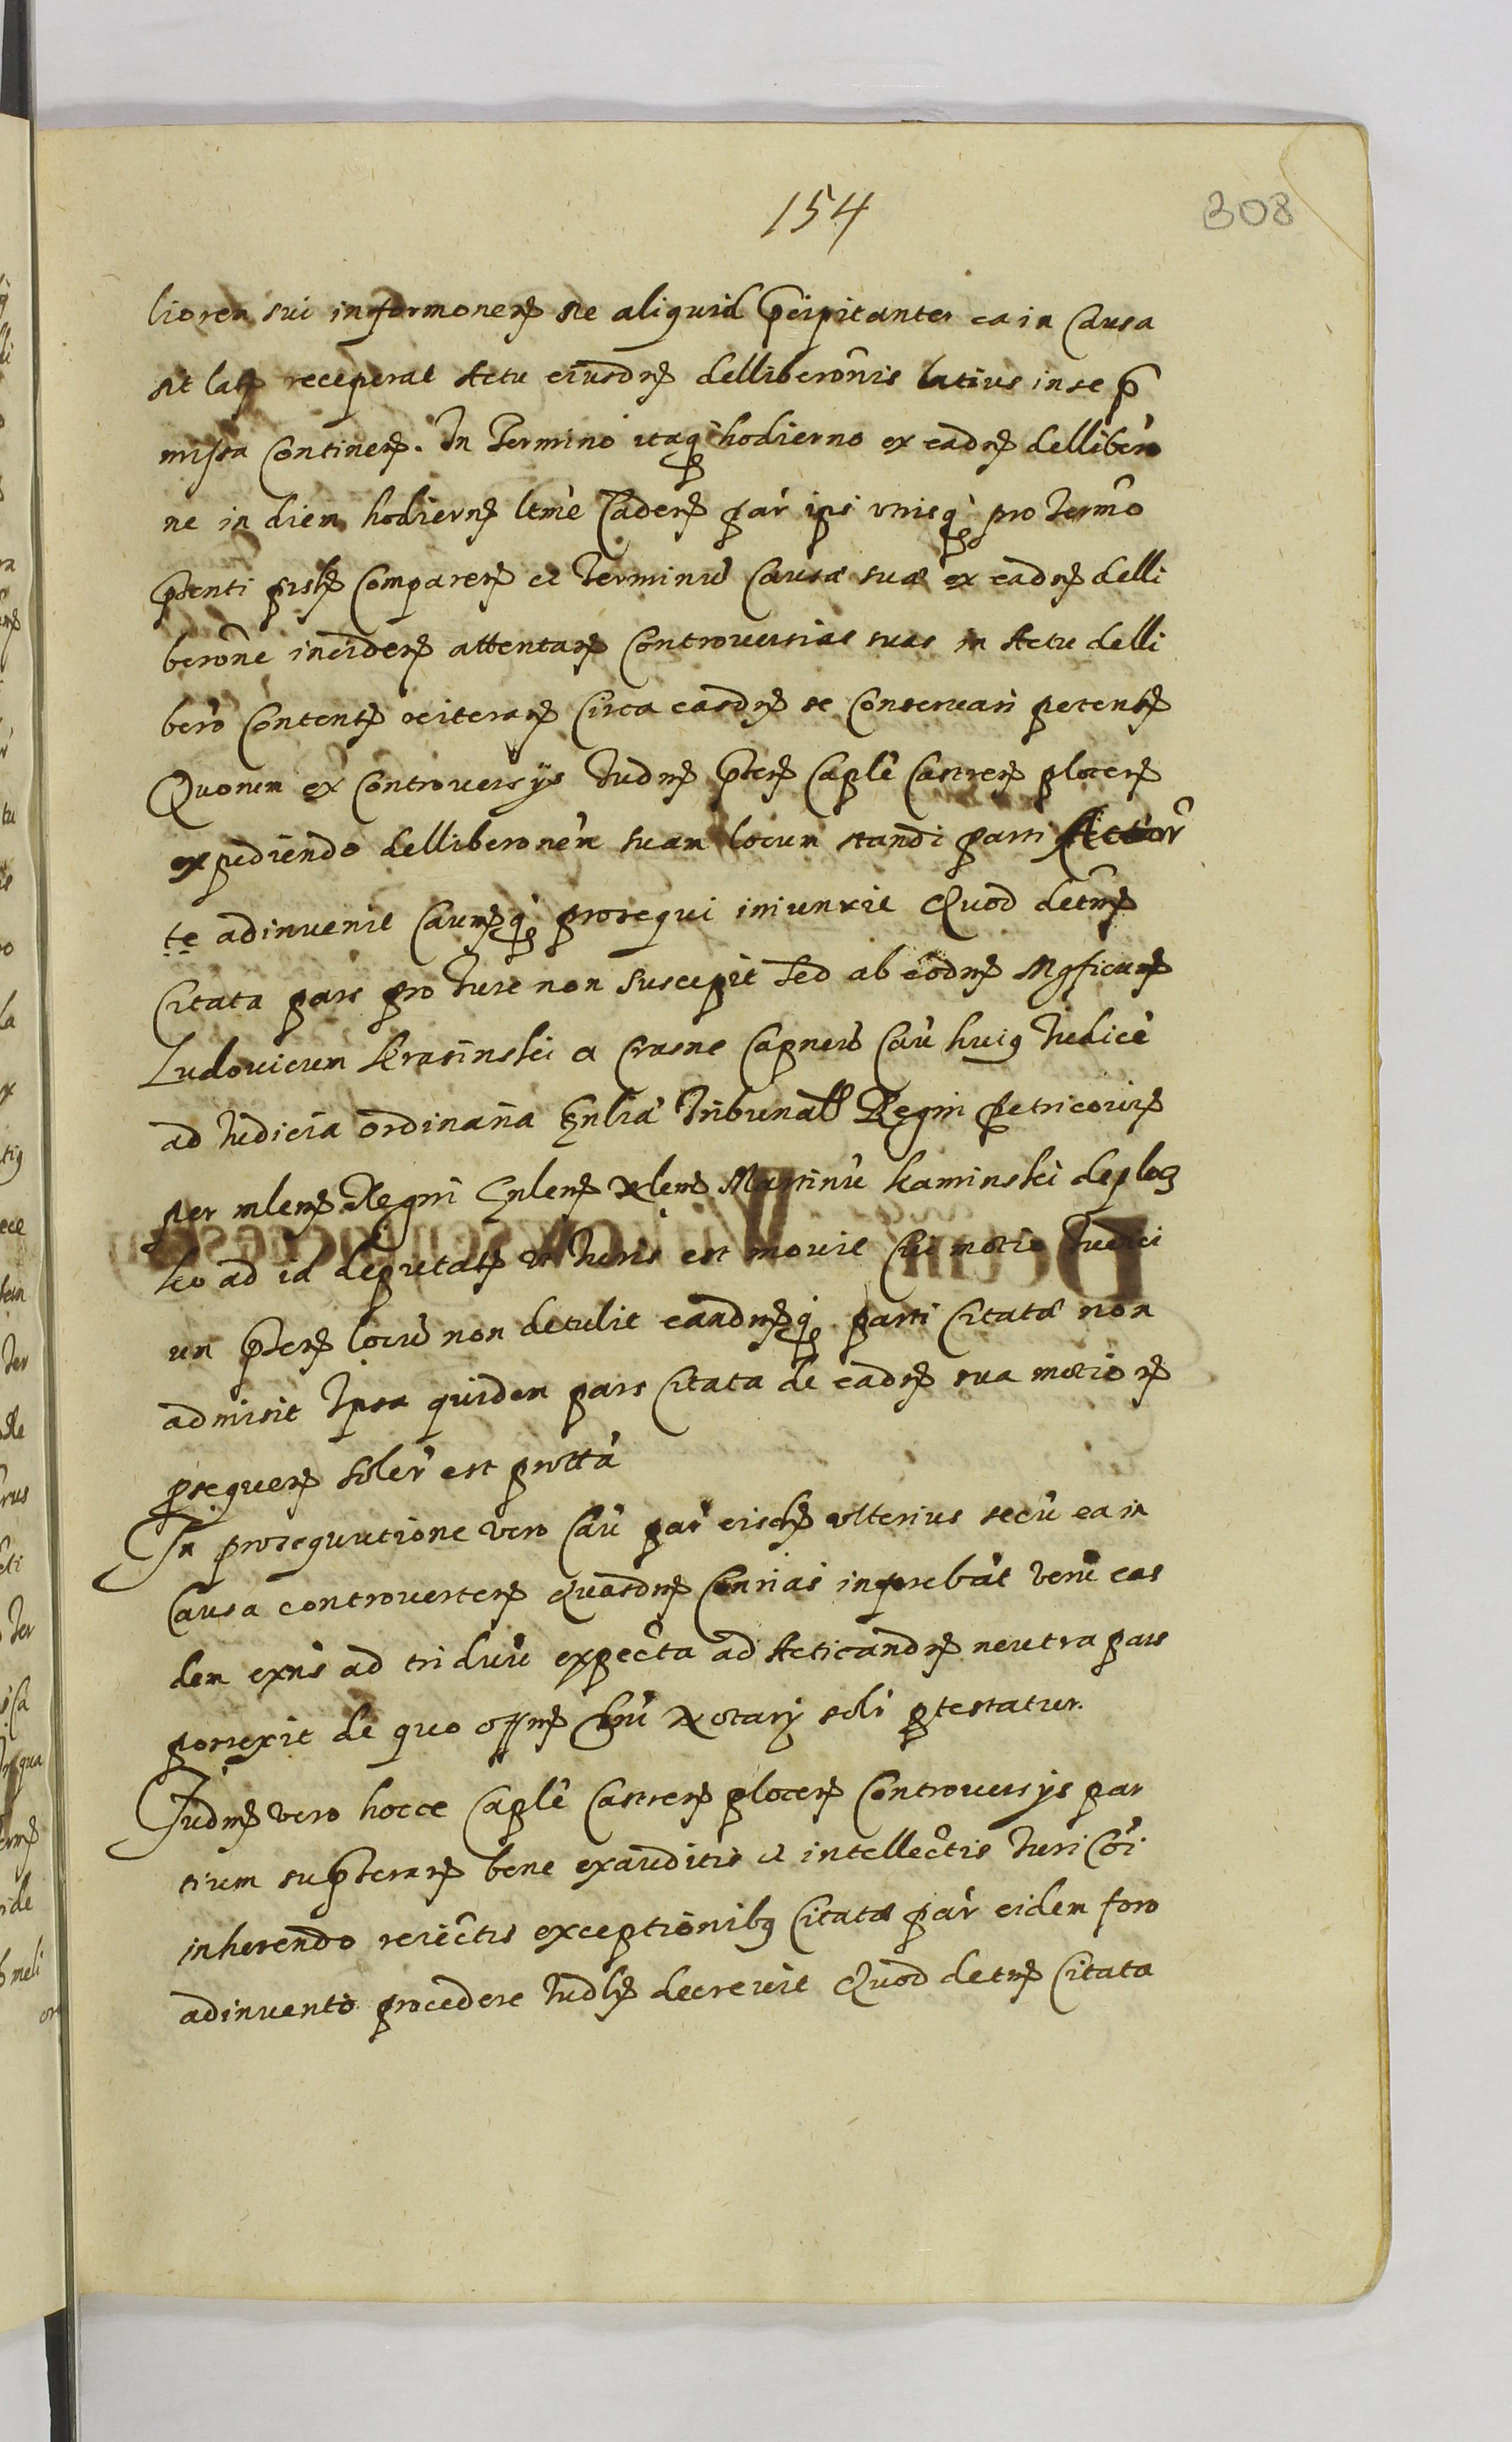 154
308
liorem sui informonem ne aliquid p̃cipitanter ea in Causa
sit latm receperat Actu eiusdm delliberoñis latius in se p̃
missa Continen. In Termino itaq hodierno ex eadm delliberõ
ne in diem hodiern ltmẽ Caden par ipi vtrisq pro termõ
p̃senti ptbs Comparen et terminũ Causæ suæ ex eadm delli
beroñe inciden attentan Controuersias suas in Actu delli
berõ Content reiteran Circa easdm se Conseruari petent
Quorum ex Controversys Iudm p̃sens Caplẽ Castren plocen
expediendo delliberonẽm suam locum standi parti Actor
te adinvenit Caumq prosequi iniunxit Quod detm
Citata pars pro Iure non suscepit Sed ab eodm Mgficum
Ludovicum Krasinski a Crasne Capneũ Caũ huig Iudicẽ
ad Iudicia ordinaria Gnlia Tribunal Regni Petricovien
per mlem Regni Gnlem Martinũ Kaminski de ploz
ko ad id deputatm vt Iuris est movit Cui motio Iudici
um p̃sens locũ non detulit eandmq parti Citatæ non
admisit Ipsa quidem pars Citata de eadm sua motione
psequen soler est protta
In prosequutione vero Caũ par eisdm vlterius secũ ea in
Causa controverten Quasdm Conrias inprebãt verũ eas
dem exns ad triduũ expecta ad Acticandm neutra pars
porrexit de quo offm hũi Notary soli ptestatur.
Iudm vero hocce Caplẽ Castren plocen Controversys par
tium suprsctan bene exauditis et intellectis Iuri Cõi
inherendo reiectis exceptionibg Citatæ par eidem foro
adinvento procedere Iudlr decrevit Quod detm Citata